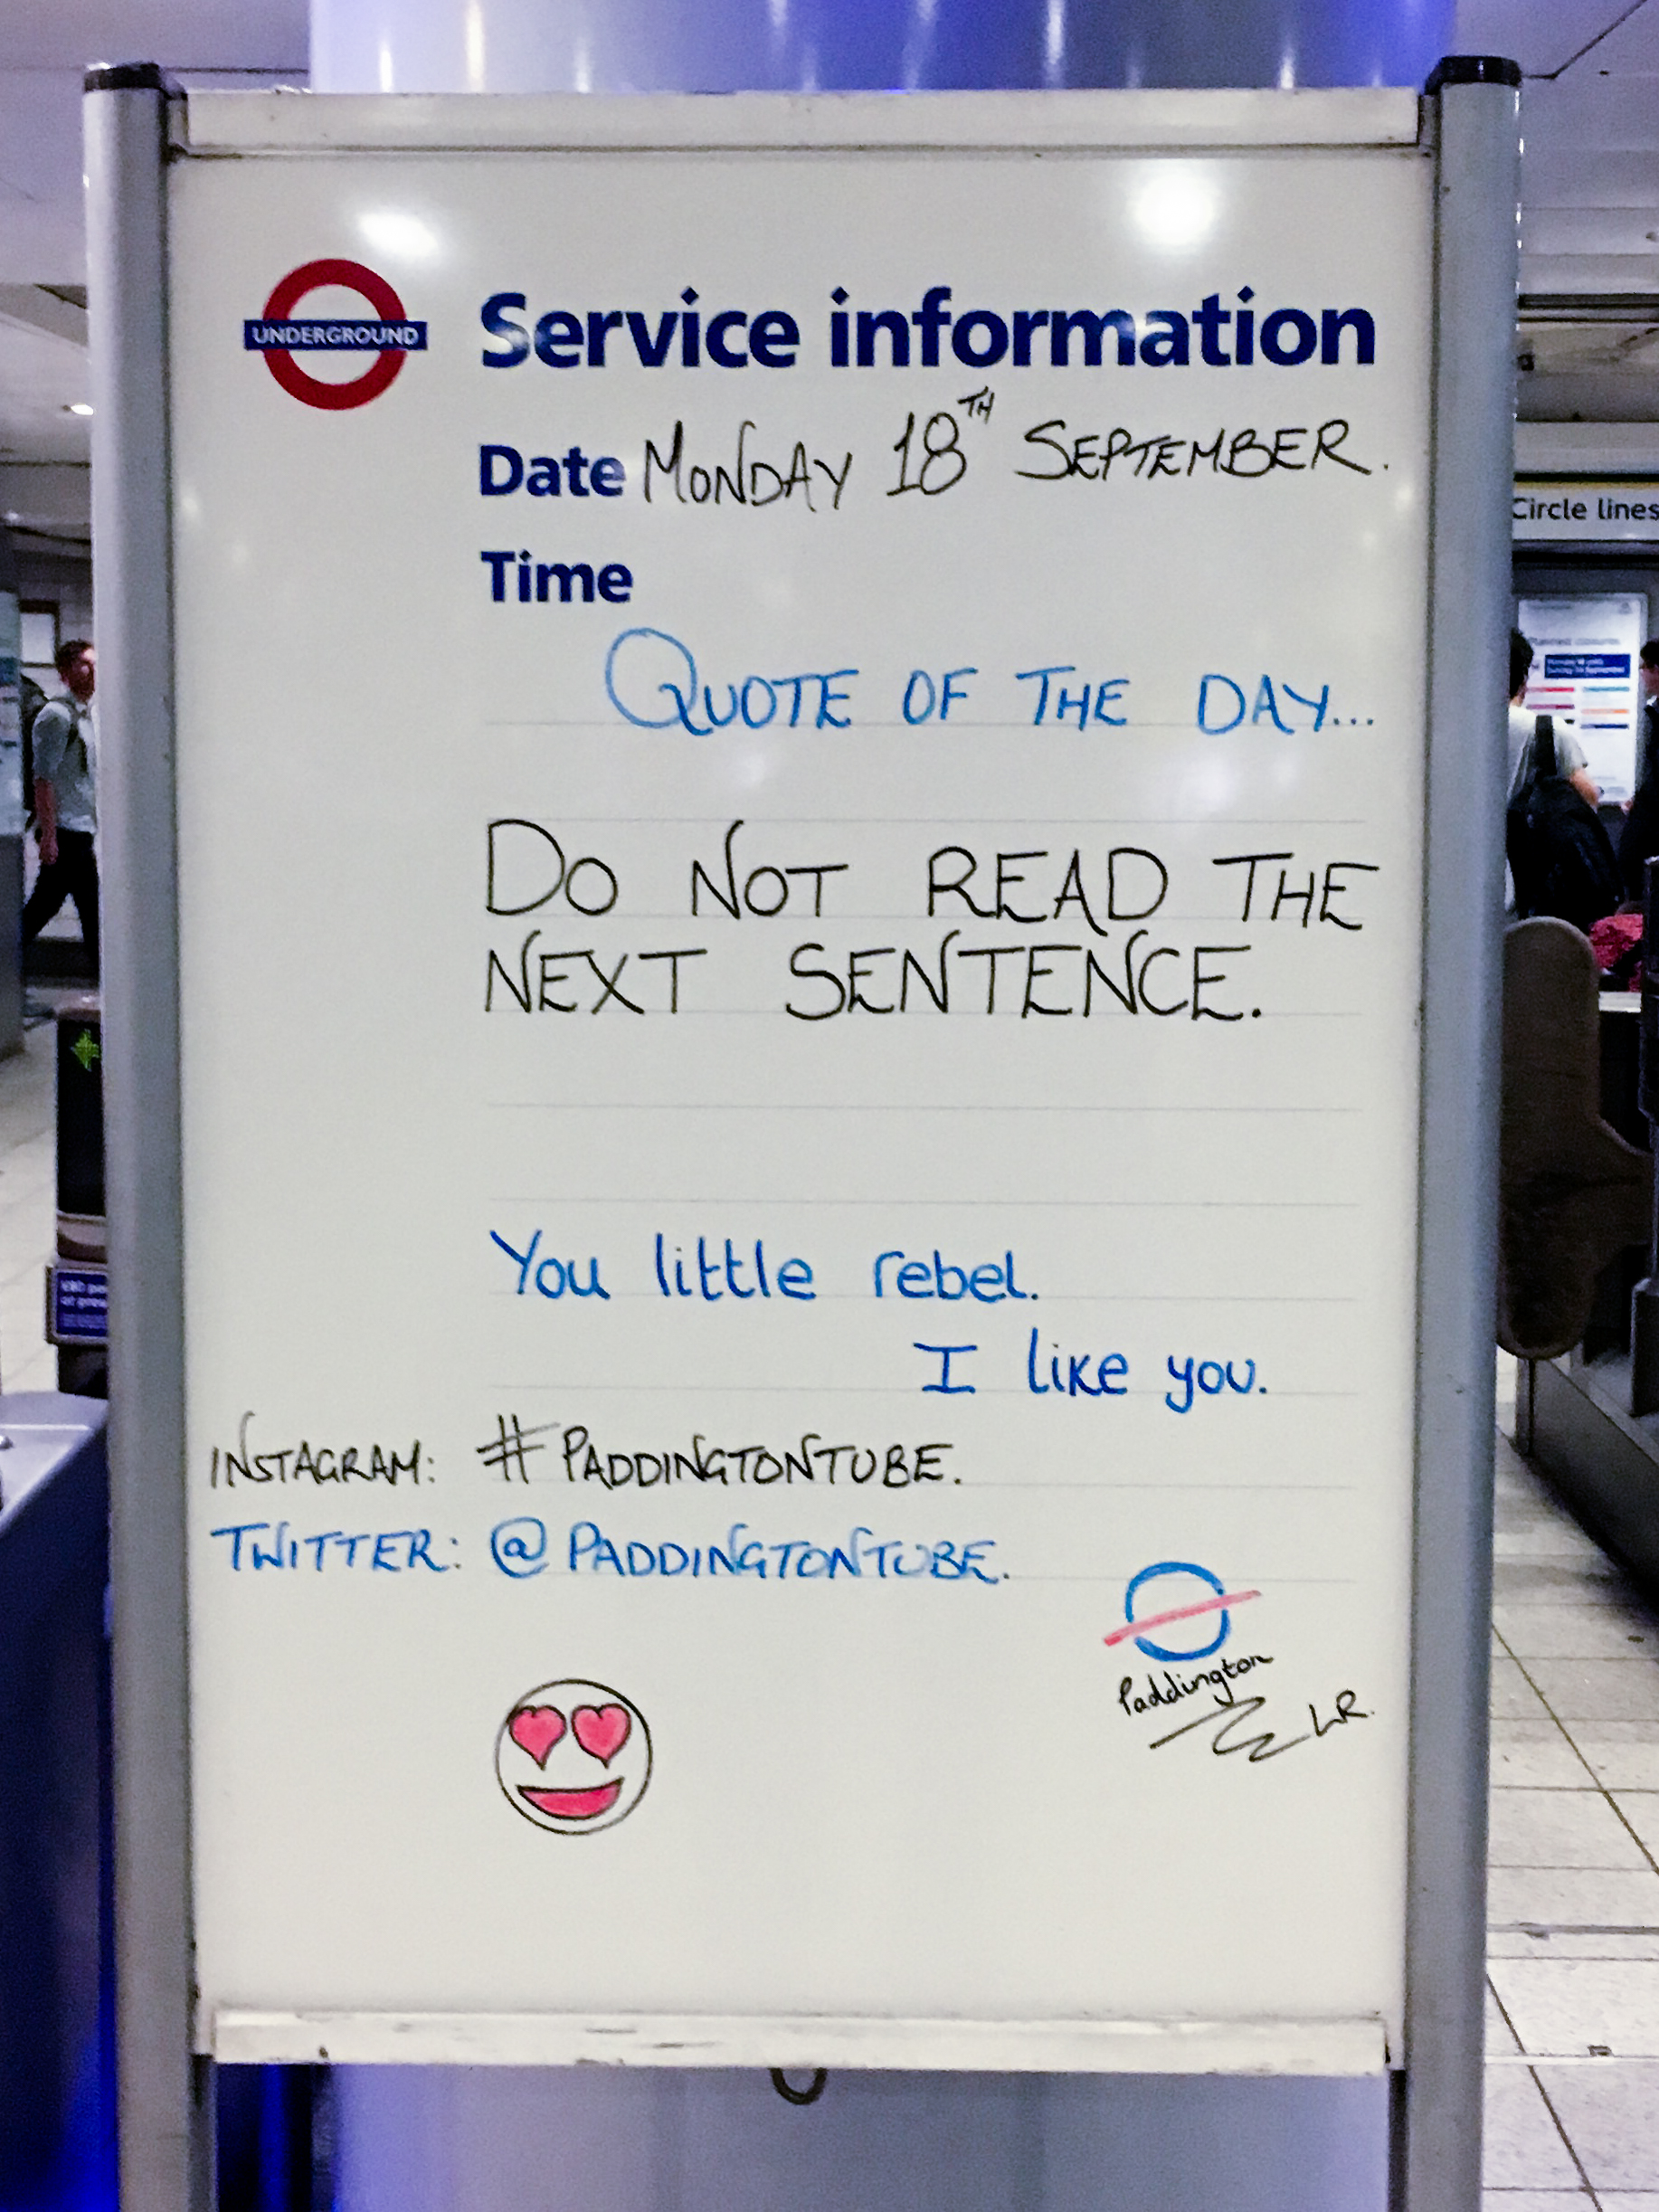 UNDERGROUND
Service information
Date MONDAY 18TH SEPTEMBER.
Time
QUOTE OF THE DAY...
DO NOT READ THE
NEXT SENTENCE.
You little rebel.
I like you.
INSTAGRAM: #PADDINGTONTUBE.
TWITTER: @PADDINGTONTUBE.
Paddington
LR.
Circle lines